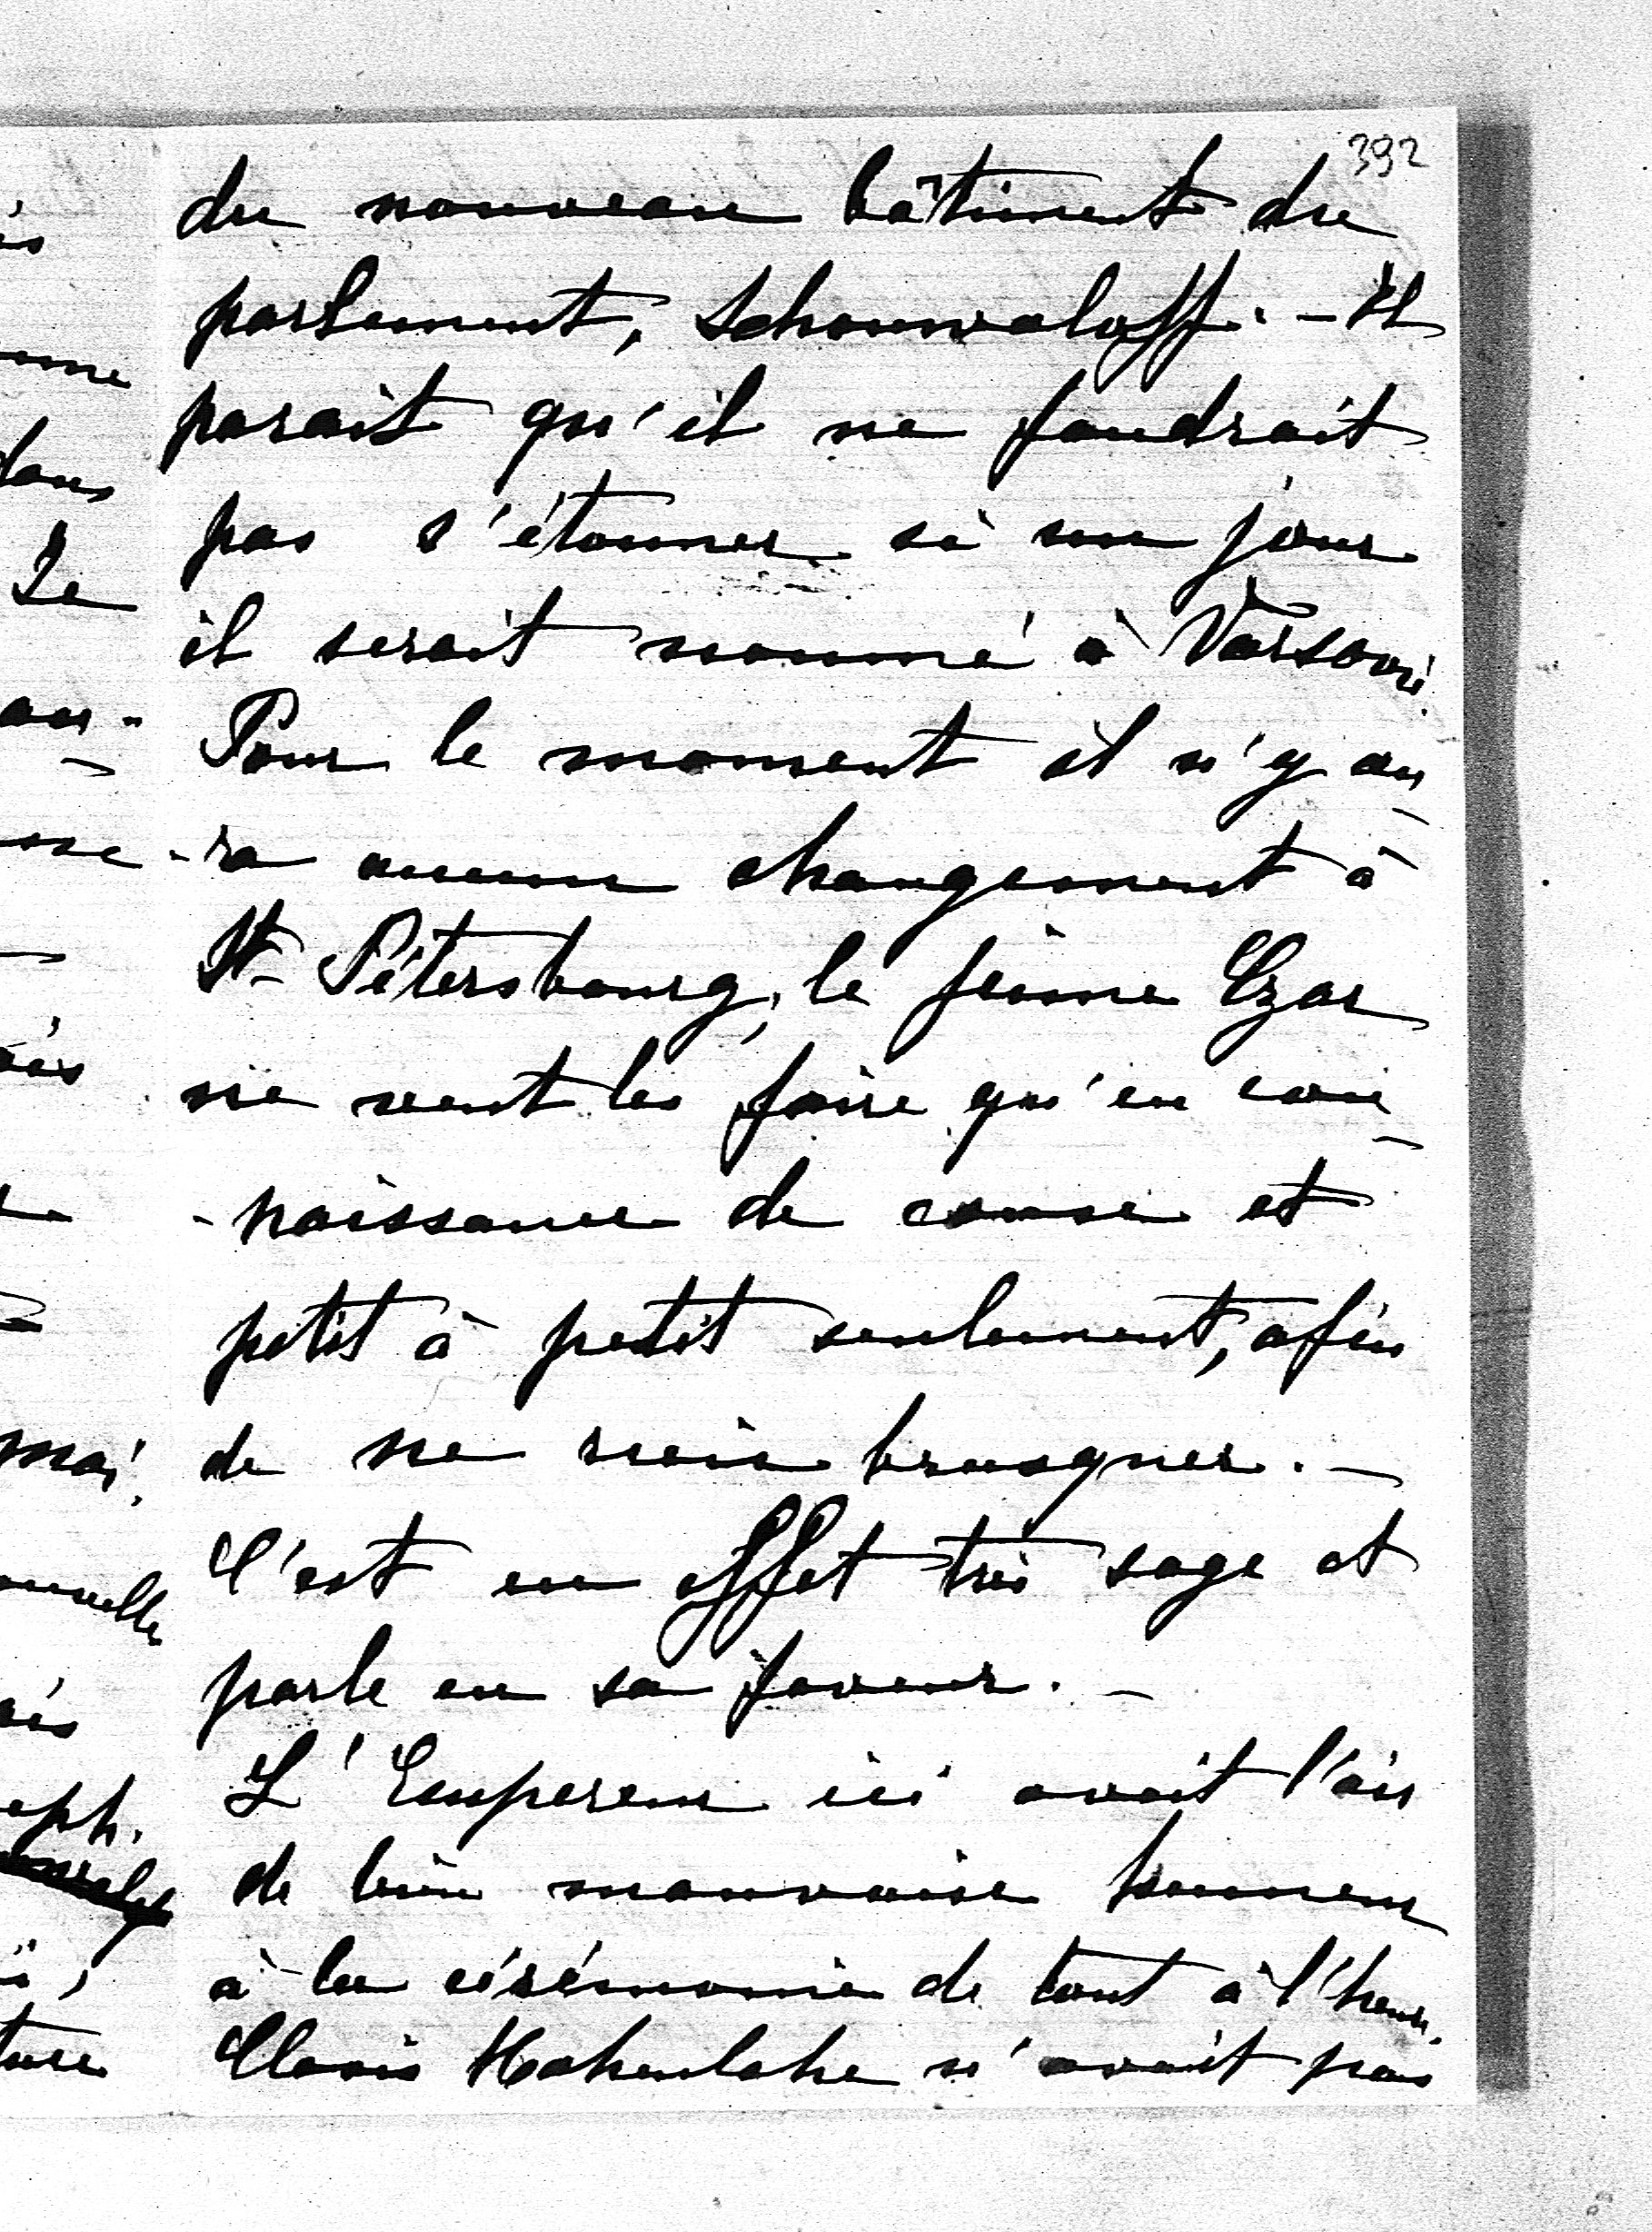 392
du nouveau bâtiment du
parlement, Schouwaloff. - Il
parait qu'il ne faudrait
pas s'étonner si un jour
il serait nommé à Varsovie.
Pour le moment il n'y au-
-ra aucun changement à
St Pétersbourg, le jeune Czar
ne veut les faire qu'en con-
-naissance de cause et
petit à petit seulement, afin
de ne rien brusquer. -
C'est en effet très sage et
parle en sa faveur. -
L'Empereur ici avait l'air
de bien mauvaise humeur
à la cérémonie de tout à l'heure.
Clovis Hohenlohe n'avait pas